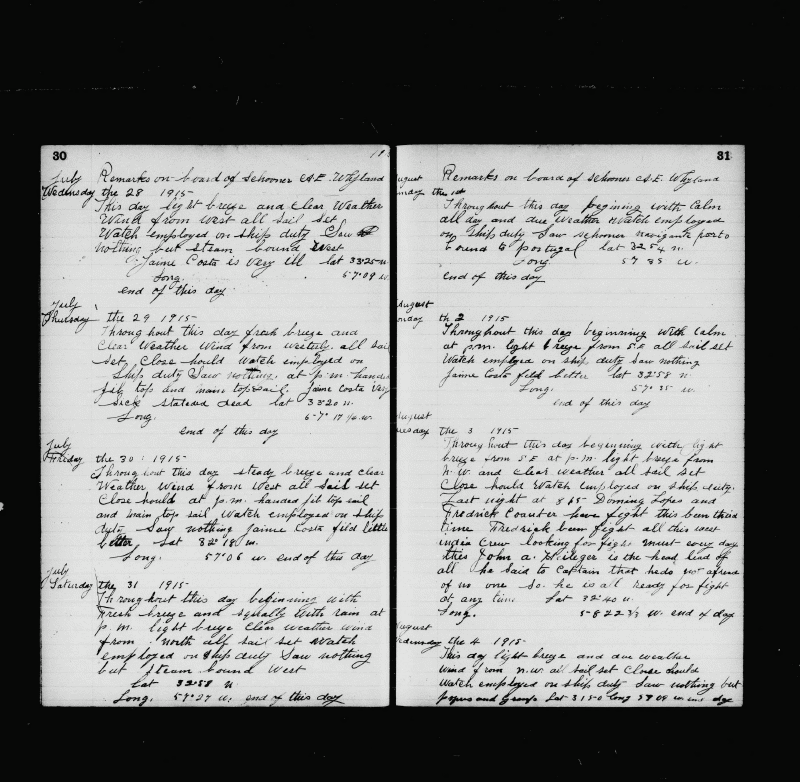 30
July Remarks on board of schooner A.E. Whyland
Wednesday the 28 1915
This day light breze and clear Weather
Wind from West all sail set
Watch employed on ship duty Saw
nothing but steam bound West
Jaime Costa is very ill lat 33°25 n.
Long. 57°09 w.
end of this day
July
Thursday the 29 1915
Throughout this day fresh breze and
Clear Weather Wind from westerly all sail
set, Close hould Watch employed on
Ship duty Saw nothing. at p.m. handed
fib top and main top sail. Jaime Costa very
sick dead lat 33°20 n.
Long. 67° 17 w.
end of this day
July
Friday the 30: 1915
Throughout this day steady breze and clear
Weather Wind from West all sail set
Close hould at p.m. handed fib top sail
and main top sail Watch employed on ship
duty Saw nothing Jaime Costa fild little
better Lat 32°18 n.
Long. 57°06 w. end of this day
July
Saturday the 31 1915
Throughout this day beginning with
Fresh breze and squally with rain at
p.m. light breze Clear weather wind
from north all sail set Watch
employed on ship duty Saw nothing
but steam bound West
Lat 32°58 n
Long. 57°27 w. end of this day
31
August Remarks on board of schooner A.E. Whyland
the 1st
Throughout this day begining with Calm
all day and due Weather Watch employed
on ship duty Saw schooner
bound to portugal lat 32°54 n.
Long 57 35 w.
end of this day
August
the 2 1915
Throughout this day beginning with Calm
at p.m. light breze from S.E all sail set
Watch employed on ship duty Saw nothing
Jaime Costa fild better lat 32°58 n.
Long. 57° 35 w.
end of this day
August
the 3 1915
Throughout this day beginning with light
breze from S.E at p.m. light breze from
N.W. and Clear weather all sail set
Close hould Watch employed on ship duty.
Last night at 8 45 Doming Lopes and
Fredrick have fight this ben third
time Fredrick ben fight all this west
india Crew looking for fight must every day
this John a. is the head lead of
all he said to Captain that hedo not afread
of no one so he is all ready for fight
at any time Lat 32°40 n.
Long. 58 22 w. end of day
August
the 4 1915
This day light breze and due weather
wind from n.w. all sail set Close hould
Watch employed on ship duty Saw nothing but
Lat 31 50 long 57 09 w day